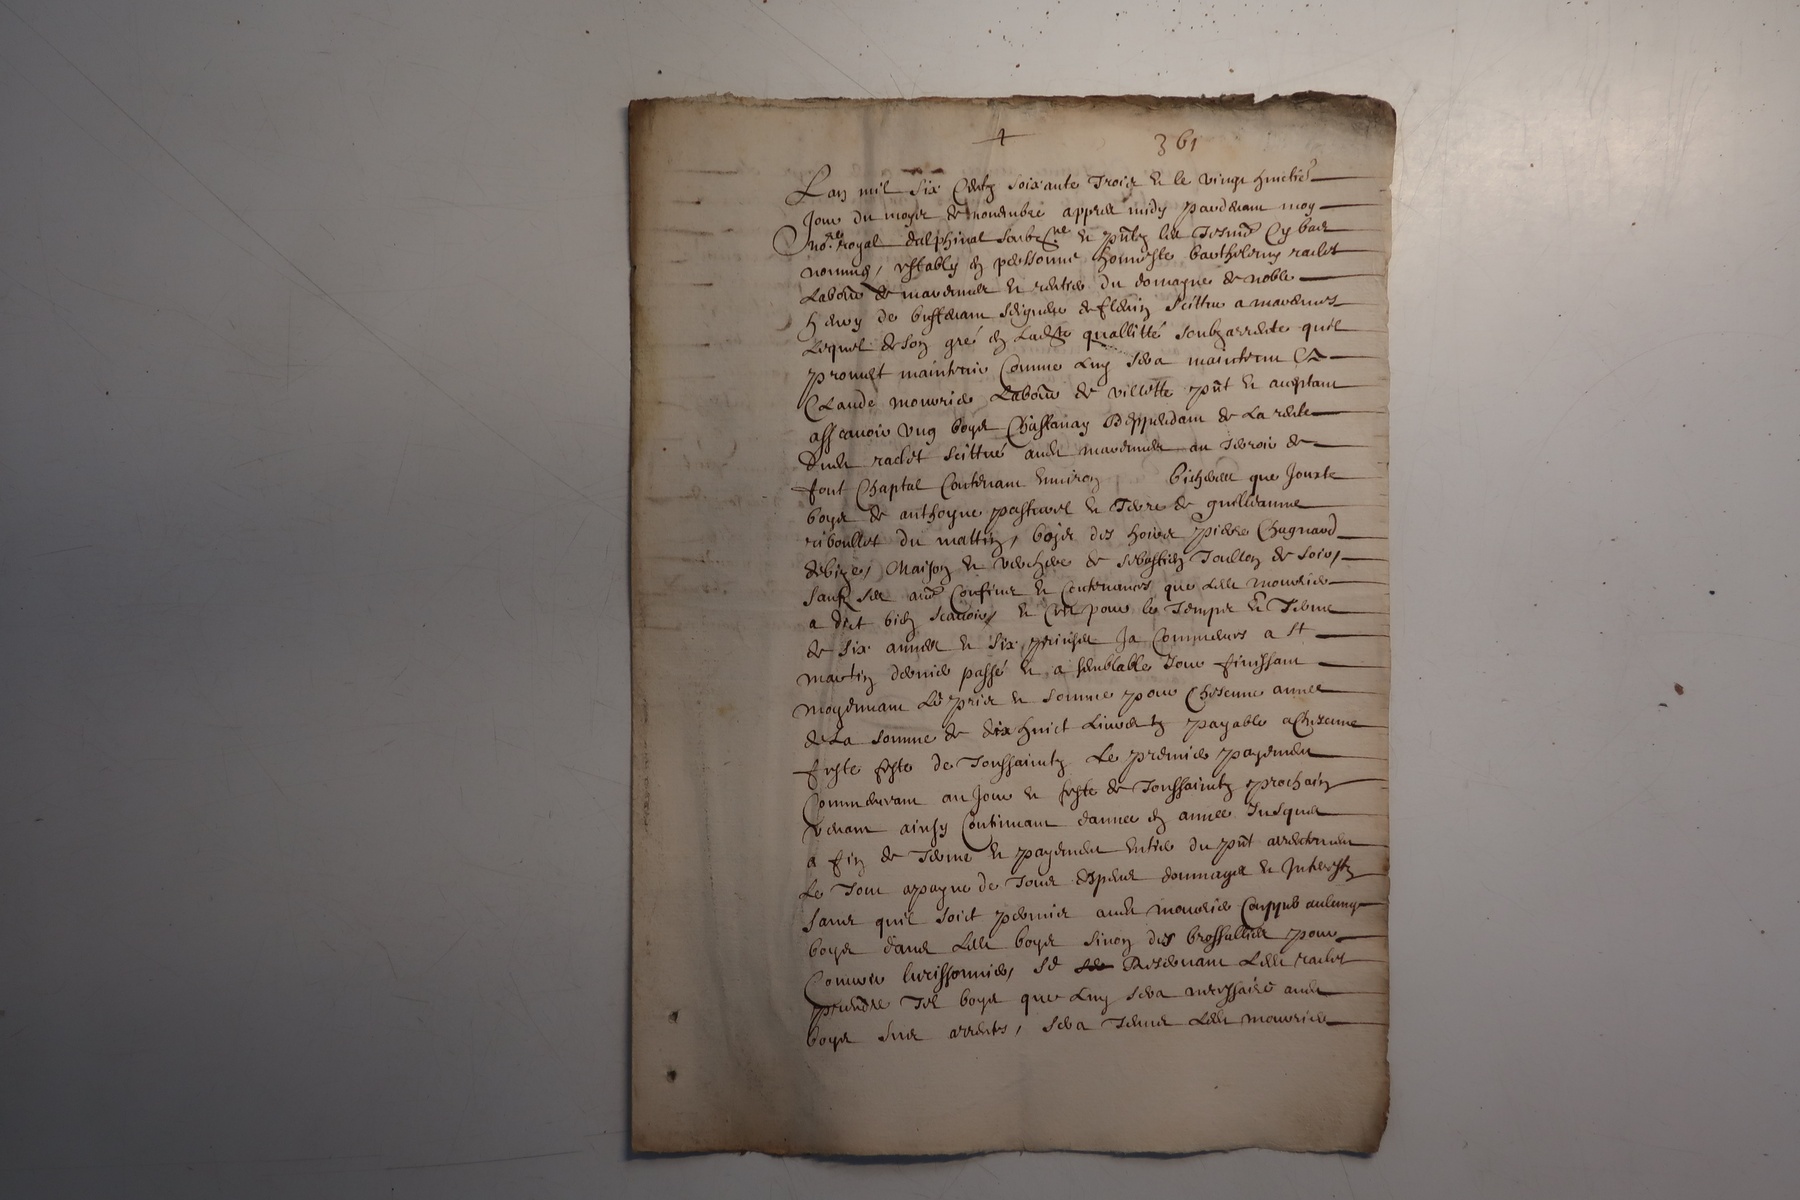 + 361
Lan mil six Centz soixante Trois & le vingt huictie
Jour du moys de novembre appres midy pardevant moy
no.re royal delphinal soubz.ne & pntz les Tesmo Cy bas
nommes, estably en personne honneste barthelemy raclet
Labour de marennes & rentier du domayne de noble
de buffevant seigneur de flevin scittue a marennes
Lequel de son gré en Ladte quallitté soubzarrente quil
promet maintenir Comme Luy sera maintenu a
Claude mourier Labour de villette pnt & aceptant
asscavoir ung boys Chastanay deppendant de La rente
dudt raclet scittué audt marennes au Terroir de
font Chaptal Contenant Environ bicherees que Jouxte
boys de anthoyne pasturel & Terre de guilleaume
riboullet du mattin, boys des hoirs pierre Chagnard
debize, Maison & verchere de sebastien Toullon de soir,
sauf ses autz Confins & Contenances que Ledt mourier
a dict bien scavoir, & Ce pour le Temps & Terme
de six annees & six prinses Ja Commences a St
martin dernier passé & a semblable Jour finissant
moyennant Le pris & somme pour Chesenne annee
de La somme de dix huict Livres tz payable a Chesenne
feste feste de Toussaintz Le premier payement
Commencant au Jour & feste de Toussaintz prochain
venant ainsy Continuant dannee en annee Jusques
a fin de Terme & payement Entier du pnt arrentement
Le Tout a payne de Tous despens dommages & Interestz
sans quil soict permis audt mourier Coupper aulcungs
boys dans Ledt boys sinon des brossallies pour
se Reservant Ledt raclet
prendre Tel boys que Luy sera necessaire audt
boys sus arrente, sera Tenu Ledt mourier